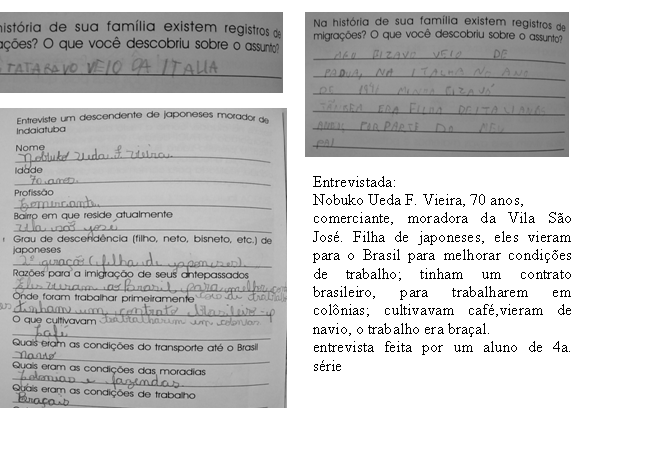 história de sua família existem registros de
ações? O que você descobriu sobre o assunto?
TATARAVO VEIO DA ITALIA
Na história de sua família existem registros de
migrações? O que você descobriu sobre o assunto?
MEU BIZAVO VEIO DE
NA ITALIA NO ANO
DE MINHA BIZAVÁ
TAMBEM ERA FILHA DE ITALIANA
POR PARTE DO MEU
PAI
Entreviste um descendente de japoneses morador de
Indaiatuba
Nome
Nobuko Ueda F. Vieira
Idade
70 anos
Profissão
Comerciante
Bairro em que reside atualmente
Vila são josé
Grau de descendência (filho, neto, bisneto, etc.) de
japoneses
2ª geração (filha de japoneses)
Razões para a imigração de seus antepassados
Eles vieram ao Brasil para melhorar
Onde foram trabalhar primeiramente
tinham um contrato brasileiro p
O que cultivavam trabalharem em colonias
Café
Quais eram as condições do transporte até o Brasil
Navio
Quais eram as condições das moradias
Colonias e fazendas
Quais eram as condições de trabalho
Braçais
Entrevistada:
Nobuko Ueda F. Vieira, 70 anos,
comerciante, moradora da Vila São
José. Filha de japoneses, eles vieram
para o Brasil para melhorar condições
de trabalho; tinham um contrato
brasileiro, para trabalharem em
colônias; cultivavam café,vieram de
navio, o trabalho era braçal.
entrevista feita por um aluno de 4a.
série